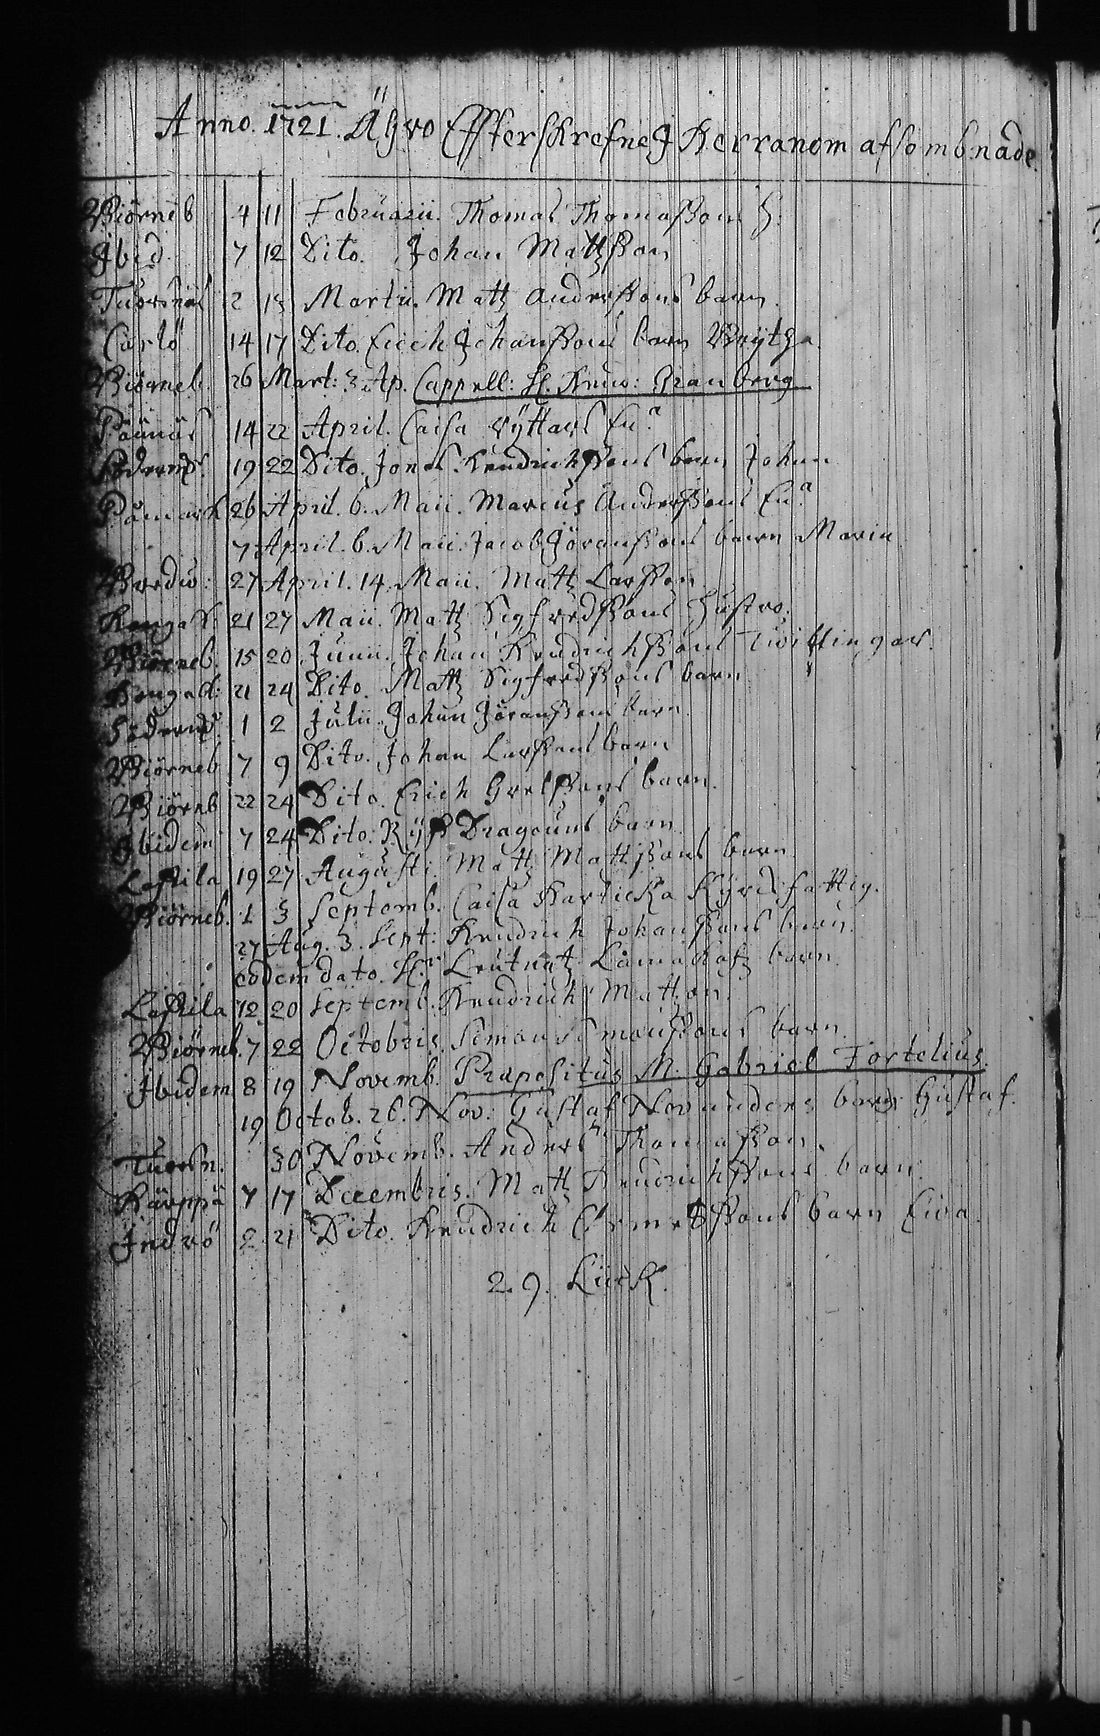 Anno. 1721. Ähro Effterskrefne J Herranom afsombnade
Biörneb 4 11 Februarii. Thomas Thomasson S.
Jbid. 7 12 Dito. Johan Mattzson
Tuorsnäs 2 13 Martii. Matz Anderssons barn.
Carlö 14 17 Dito. Erich Johanssons barn Brÿtha
Biörneb. 26 Mart: 3. Ap. Cappell: H. Granberg
Påunus 14 22 April. Caisa Rÿttars En.a
Söderm. 19 22 Dito. Jonas Hendrichssons barn Johan
Påmark 26 April. 6. Maii. Marcus Anderssons En.a
7 April. 6. Maii. Jacob Jöranssons barn Maria
Bredw: 27 April. 14. Maii. Matz Larsson
Kengas. 21 27 Maii. Matz Sigfredssons Hustro.
Biörneb. 15 20 Junii. Johan Hendrichssons Twillingar.
Kengas: 21 24 Dito. Matz Sigfredssons barn
Söderm. 1 2 Julii. Johan Jöranssons barn.
Biörneb 7 9 Dito. Johan Larssons barn
Biörneb 22 24 Dito. Erich Grelssons barn.
Jbidem 7 24 Dito. Rÿss Dragouns barn.
Lastila 19 27 Augusti. Matz Mattssons barn
Biörneb. 1 3 Septemb. Caisa Kyrkofattig.
27 Aug. 3. Sept: Hendrich Johanssons barn.
eodem dato. H.r Leutnatz barn
Lastila 12 20 Septemb. Hendrich Matzon.
Biörneb. 7 22 Octobris. Simon Simonssons barn
Jbidem 8 19 Novemb. Præpositus M. Gabriel Fortelius.
19 Octob. 26. Nov: Gustaf Novanders barn Gustaf.
Tuorsn. 30 Novemb. Anders Thomasson.
Kärppä 7 17 Decembris. Matz Hendrichssons barn
Inderö 2 21 Dito. Hendrich barn Ewa.
29. Lijck.